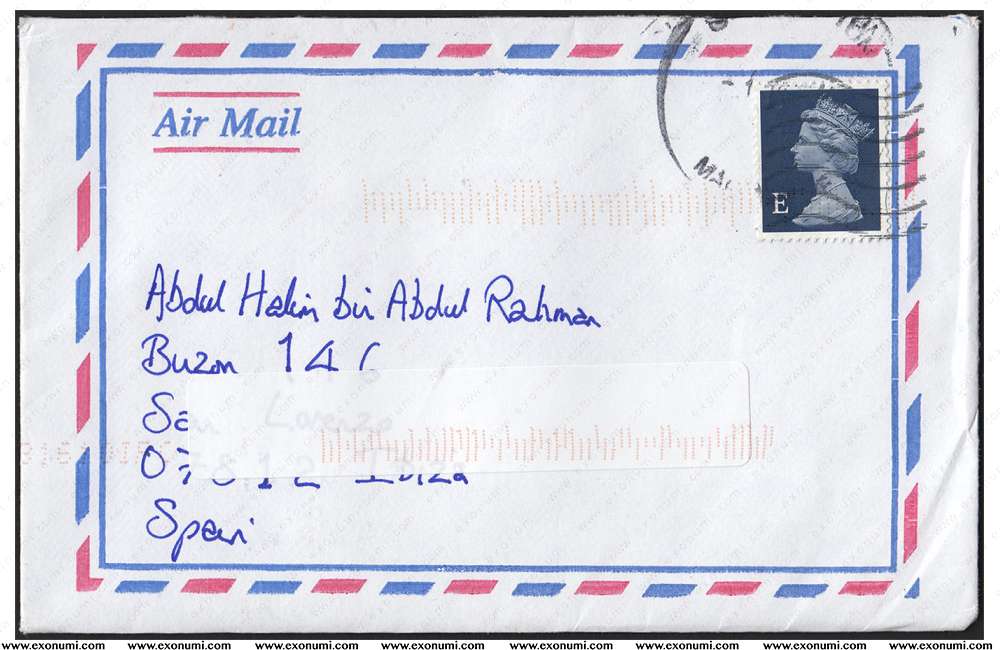 Air Mail
E
Abdul Hakim bin Abdul Rahman
Buzon 146
San Lorenzo
07812 Ibiza
Spain
www.exonumi.com www.exonumi.com www.exonumi.com www.exonumi.com www.exonumi.com www.exonumi.com www.exonumi.com www.exonumi.com